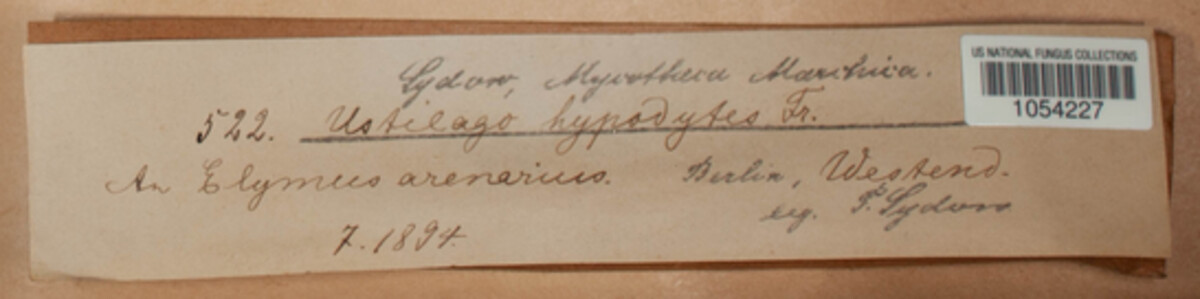 Sydow, Mycotheca Marchica.
US NATIONAL FUNGUS COLLECTIONS
1054227
522. Ustilago hypodytes Fr.
An Elymus arenarius. Berlin, Westend.
leg. P. Sydow
7. 1894.